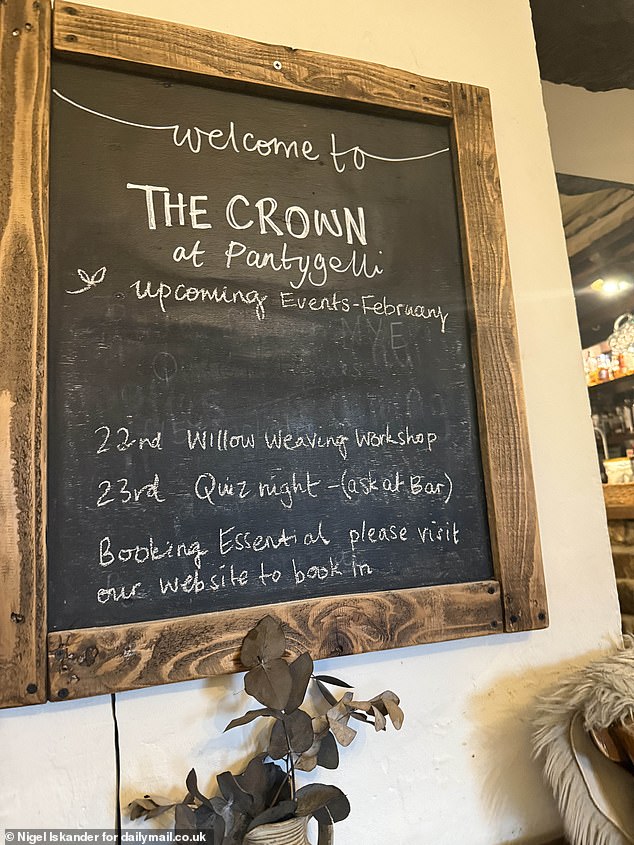 welcome to
THE CROWN
at Pantygelli
upcoming Events-February
NYE
22nd Willow Weaving Workshop
23rd Quiz night -(ask at Bar)
Booking Essential please visit
our website to book in
© Nigel Iskander for dailymail.co.uk